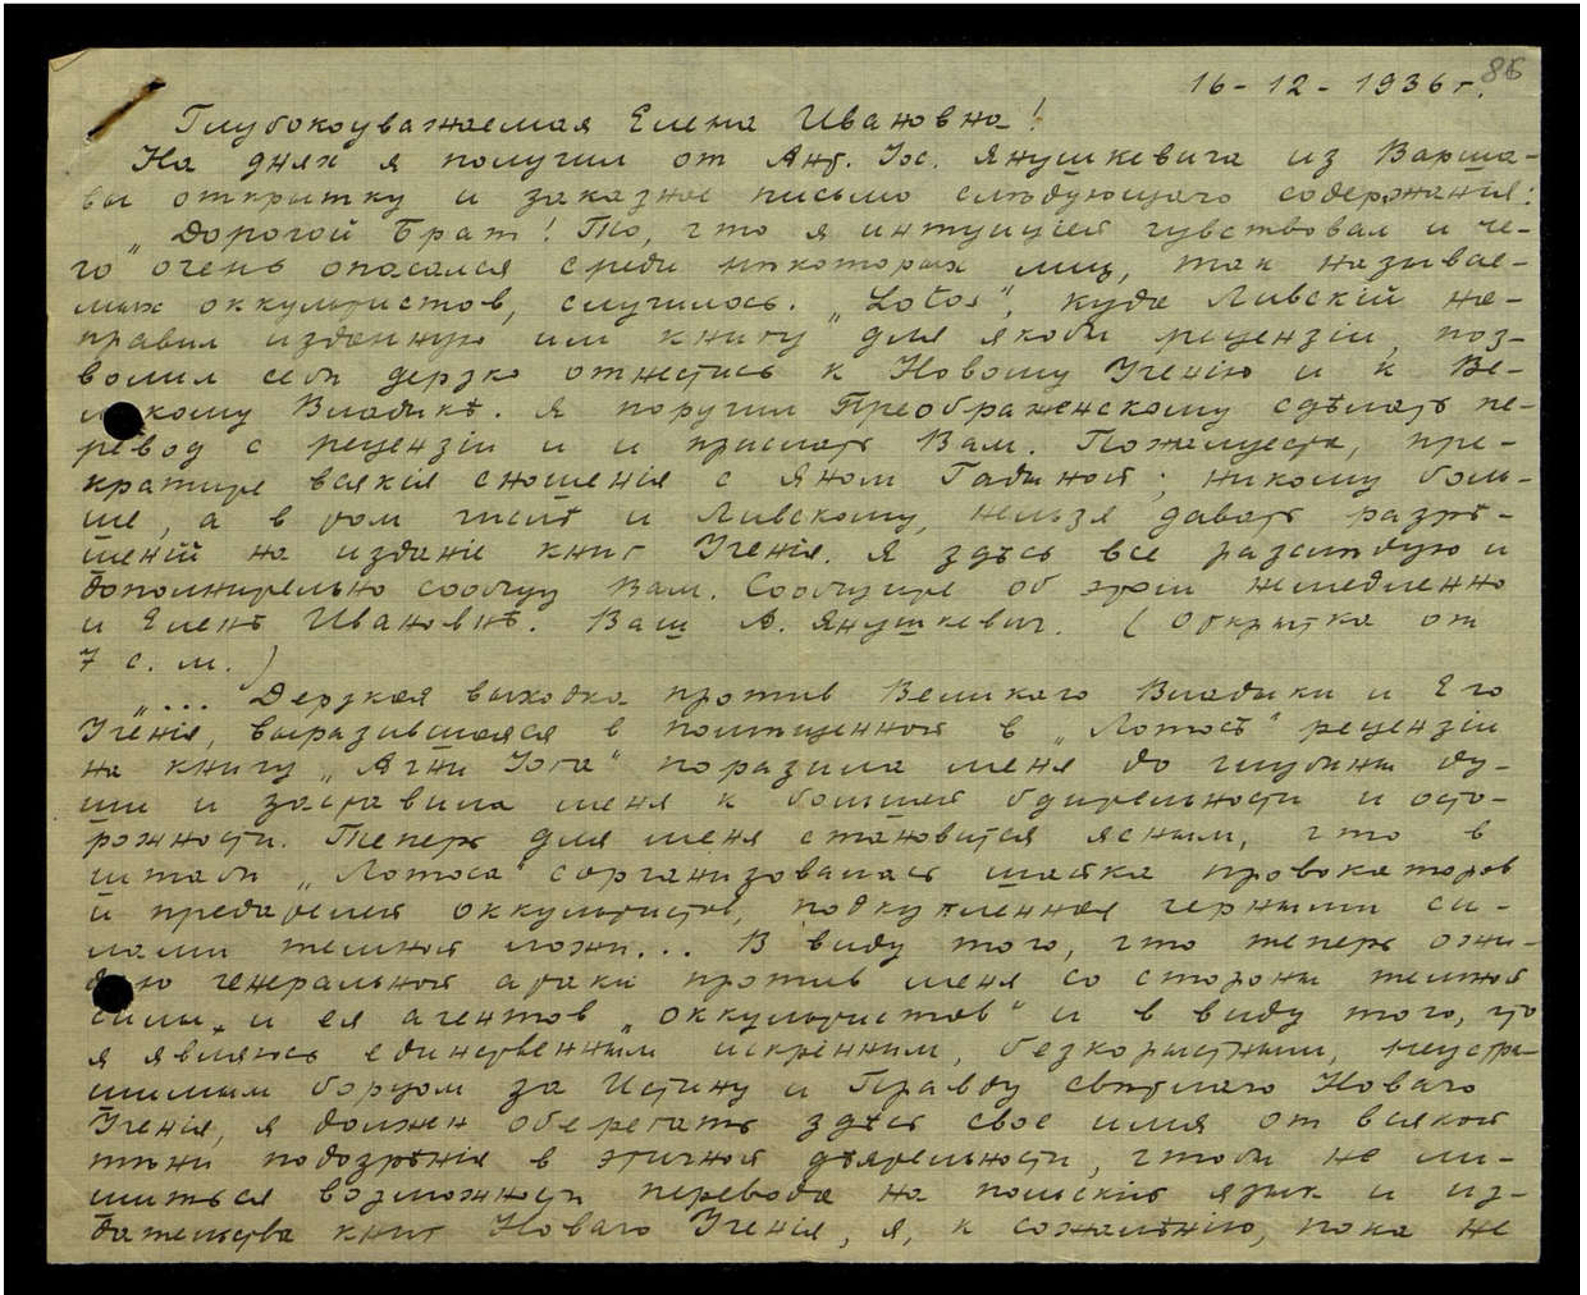 86
16-12-1936 г.
Глубокоуважаемая Елена Ивановна!
На днях я получил от Ант. Іос. Янушкевича из Варша-
вы открытку и заказное письмо слѣдующаго содержанія:
„Дорогой Брат! То, что я интуиціей чувствовал и че-
го очень опасался среди нѣкоторых лиц, так называе-
мых оккультистов, случилось. „Lotos", куда Ливскій на-
правил изданную им книгу для якобы рецензіи, поз-
волил себѣ дерзко отнестись к Новому Ученію и к Ве-
ликому Владыкѣ. Я поручил Преображенскому сдѣлать пе-
ревод с рецензіи и и прислать Вам. Пожалуйста, пре-
кратите всякія сношенія с Яном Гадиной; никому боль-
ше, а в том числѣ и Ливскому, нельзя давать разрѣ-
шеній на изданіе книг Ученія. Я здѣсь все разслѣдую и
дополнительно сообщу Вам. Сообщите об этом немедленно
и Еленѣ Ивановнѣ. Ваш А. Янушкевич. (Открытка от
7 с. м.)
„... Дерзкая выходка против Великаго Владыки и Его
Ученія, выразившаяся в помѣщенной в „Лотосѣ" рецензіи
на книгу „Агни Іога" поразила меня до глубины ду-
ши и заставила меня к большей бдительности и осто-
рожности. Теперь для меня становится ясным, что в
штабѣ „Лотоса" сорганизовалась шайка провокаторов
и предателей оккультистов, подкупленная черными си-
лами темной ложи... В виду того, что теперь ожи-
даю генеральной атаки против меня со стороны темной
силы и ея агентов „оккультистов" и в виду того, что
я являюсь единственным искренним, безкорыстным, неустра-
шимым борцом за Истину и Правду свѣтлаго Новаго
Ученія, я должен оберегать здѣсь свое имя от всякой
тѣни подозрѣнія в этичной дѣятельности, чтобы не ли-
шиться возможности перевода на польскій язык и из-
дательства книг Новаго Ученія, я, к сожалѣнію, пока не